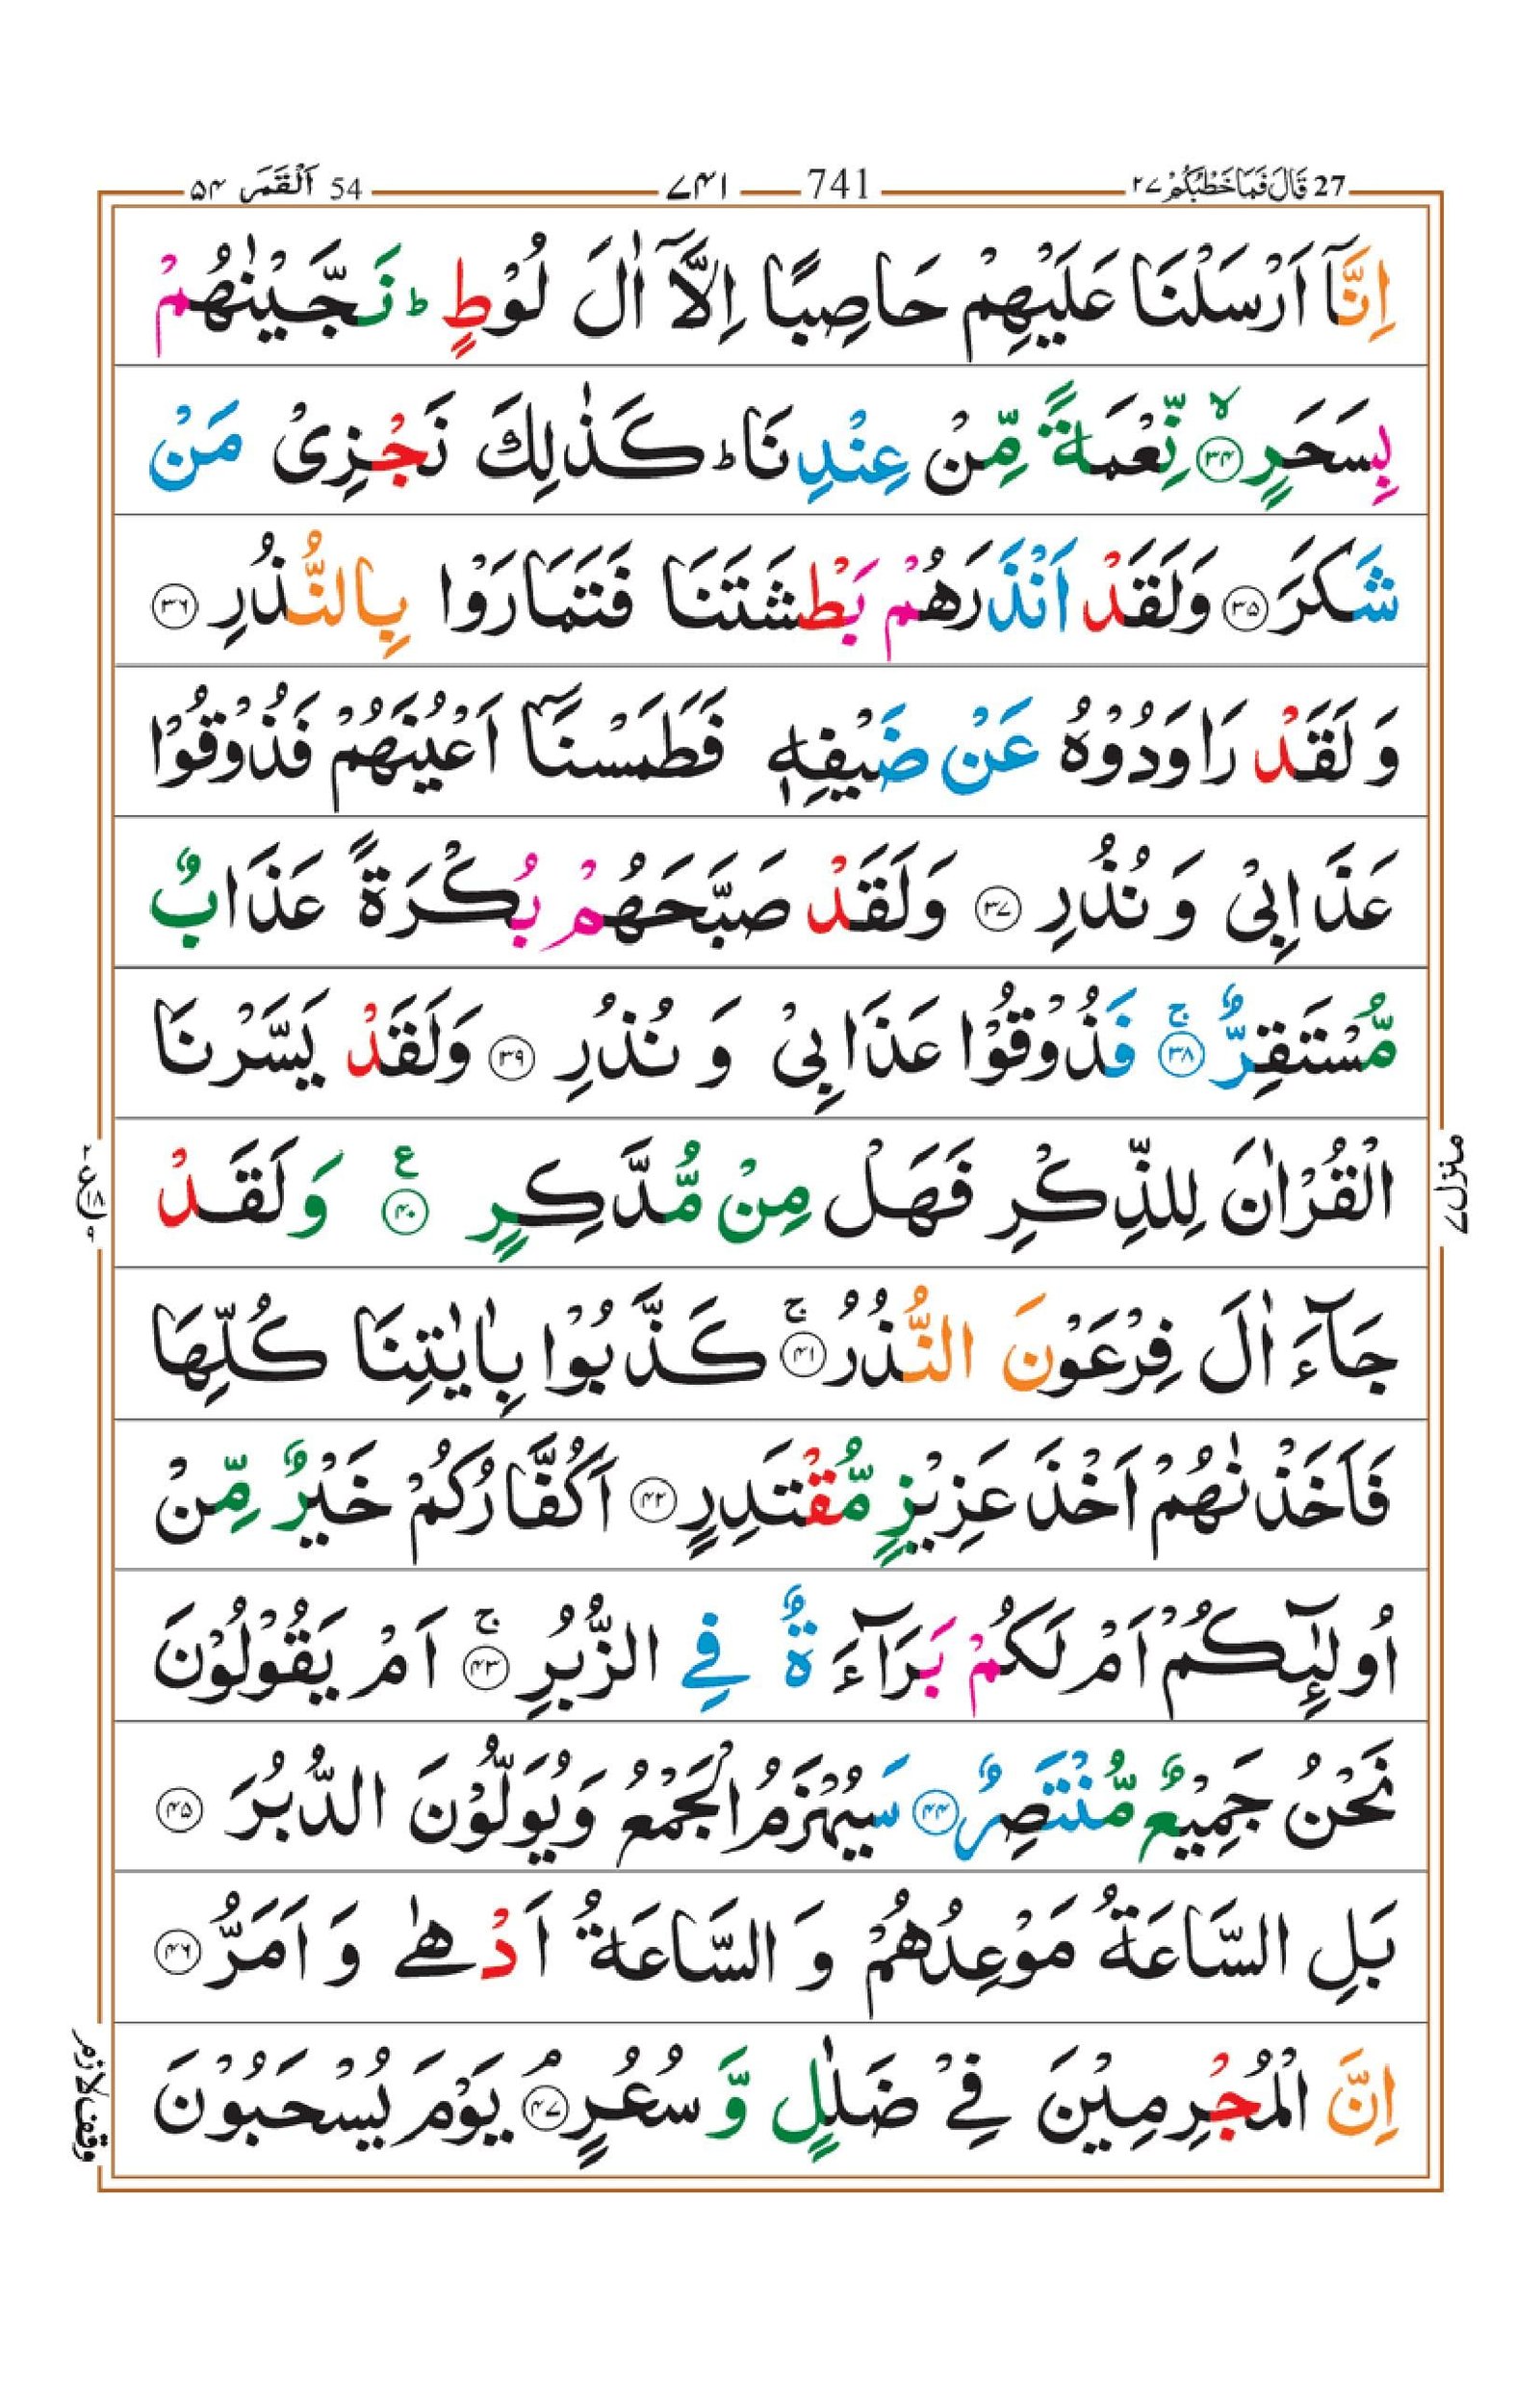 27 قَالَ فَمَا خَطْبُكُمْ ۲۷ 741 ۷۴۱ 54 اَلْقَمَر ۵۴
اِنَّاۤ اَرْسَلْنَا عَلَيْهِمْ حَاصِبًا اِلَّاۤ اٰلَ لُوْطٍ ؕ نَجَّيْنٰهُمْ
بِسَحَرٍ ۙ﴿۳۴﴾ نِّعْمَةً مِّنْ عِنْدِنَا ؕ كَذٰلِكَ نَجْزِىْ مَنْ
شَكَرَ ﴿۳۵﴾ وَلَقَدْ اَنْذَرَهُمْ بَطْشَتَنَا فَتَمَارَوْا بِالنُّذُرِ ﴿۳۶﴾
وَ لَقَدْ رَاوَدُوْهُ عَنْ ضَيْفِهٖ فَطَمَسْنَاۤ اَعْيُنَهُمْ فَذُوْقُوْا
عَذَابِىْ وَ نُذُرِ ﴿۳۷﴾ وَلَقَدْ صَبَّحَهُمْ بُكْرَةً عَذَابٌ
مُّسْتَقِرٌّ ۚ﴿۳۸﴾ فَذُوْقُوْا عَذَابِىْ وَ نُذُرِ ﴿۳۹﴾ وَلَقَدْ يَسَّرْنَا
الْقُرْاٰنَ لِلذِّكْرِ فَهَلْ مِنْ مُّدَّكِرٍ ﴿۴۰﴾ ع وَلَقَدْ
جَآءَ اٰلَ فِرْعَوْنَ النُّذُرُ ۚ﴿۴۱﴾ كَذَّبُوْا بِاٰيٰتِنَا كُلِّهَا
فَاَخَذْنٰهُمْ اَخْذَ عَزِيْزٍ مُّقْتَدِرٍ ﴿۴۲﴾ اَكُفَّارُكُمْ خَيْرٌ مِّنْ
اُولٰٓئِكُمْ اَمْ لَكُمْ بَرَآءَةٌ فِى الزُّبُرِ ۚ﴿۴۳﴾ اَمْ يَقُوْلُوْنَ
نَحْنُ جَمِيْعٌ مُّنْتَصِرٌ ﴿۴۴﴾ سَيُهْزَمُ الْجَمْعُ وَيُوَلُّوْنَ الدُّبُرَ ﴿۴۵﴾
بَلِ السَّاعَةُ مَوْعِدُهُمْ وَ السَّاعَةُ اَدْهٰى وَ اَمَرُّ ﴿۴۶﴾
اِنَّ الْمُجْرِمِيْنَ فِىْ ضَلٰلٍ وَّ سُعُرٍ ۘ﴿۴۷﴾ يَوْمَ يُسْحَبُوْنَ
منزل ۷
۲ ع ۱۸ ۹
وقف لازم